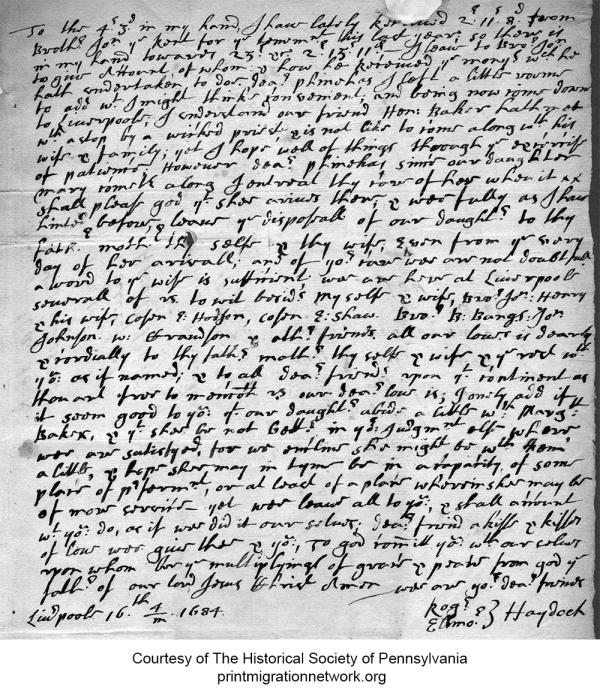 To the 4s. 3d in my hand, I have lately received 2. 11. 8. from
Broth: Jon ye rent for ye tenement this last year, so there is
in my hand towards 23: yrs 2: 13: 11d I leave to Bro: Jon
to give Account of whom & how he received ye moneys wch he
hath undertaken to doe, deare phinehas I left a little roome
to add wt I might think convenient, and being now come down
to Liverpoole, I understand our friend Hen: Baker hath met
wth a stop by a wicked priest, & is not like to come along wth his
wife & family; yet I hope well of things through ye exercise
of patience, However deare phinehas since our daughter
mary comes along I entreat thy care of her when it
shall please god yt shee arrives there, & wee fully as I have
hinted before, leave ye disposall of our daughter to thy
fathr mothr thy selfe & thy wife, even from ye very
day of her arrivall; and of yor care wee are not doubtfull
a word to ye wise is sufficient, wee are here at Liverpoole
severall of us to wit besids my selfe & wife, Bro: Jo: Henry
& his wife, Cosen E: Hodson, Cosen E: Shaw, Bro: B: Bangs, Jon
Johnson. w: Grandson & othr friends, all our loves is dearly
& cordially to thy fathr mothr thy selfe & wife & ye rest wth
you as if named; & to all deare friends upon yt continent as
thou art free to mention us our deare love is; I onely add if
it seem good to you if our daughtr abide a little wth Marg:
Baker, & yt shee be not bettr in yor Judgmnt else where
wee are satisfyed, for we encline shee might be wth them
a little, & hope shee may in tyme be in a capacity, of some
place of prferment, or at least of a place wherein shee may be
of more service yet wee leave all to you, & shall account
wt you do, as if wee did it our selves: deare friend a kiss & kisses
of love wee give thee & you, To god comitt you wth our selves
upon whom be ye multiplyings of grace & peace from god ye
fathr of our lord Jesus Christ Amen wee are yor deare friends
Liverpoole 16.th 4/m 1684.
Rogr &
Elino: } Haydock
Courtesy of The Historical Society of Pennsylvania
printmigrationnetwork.org